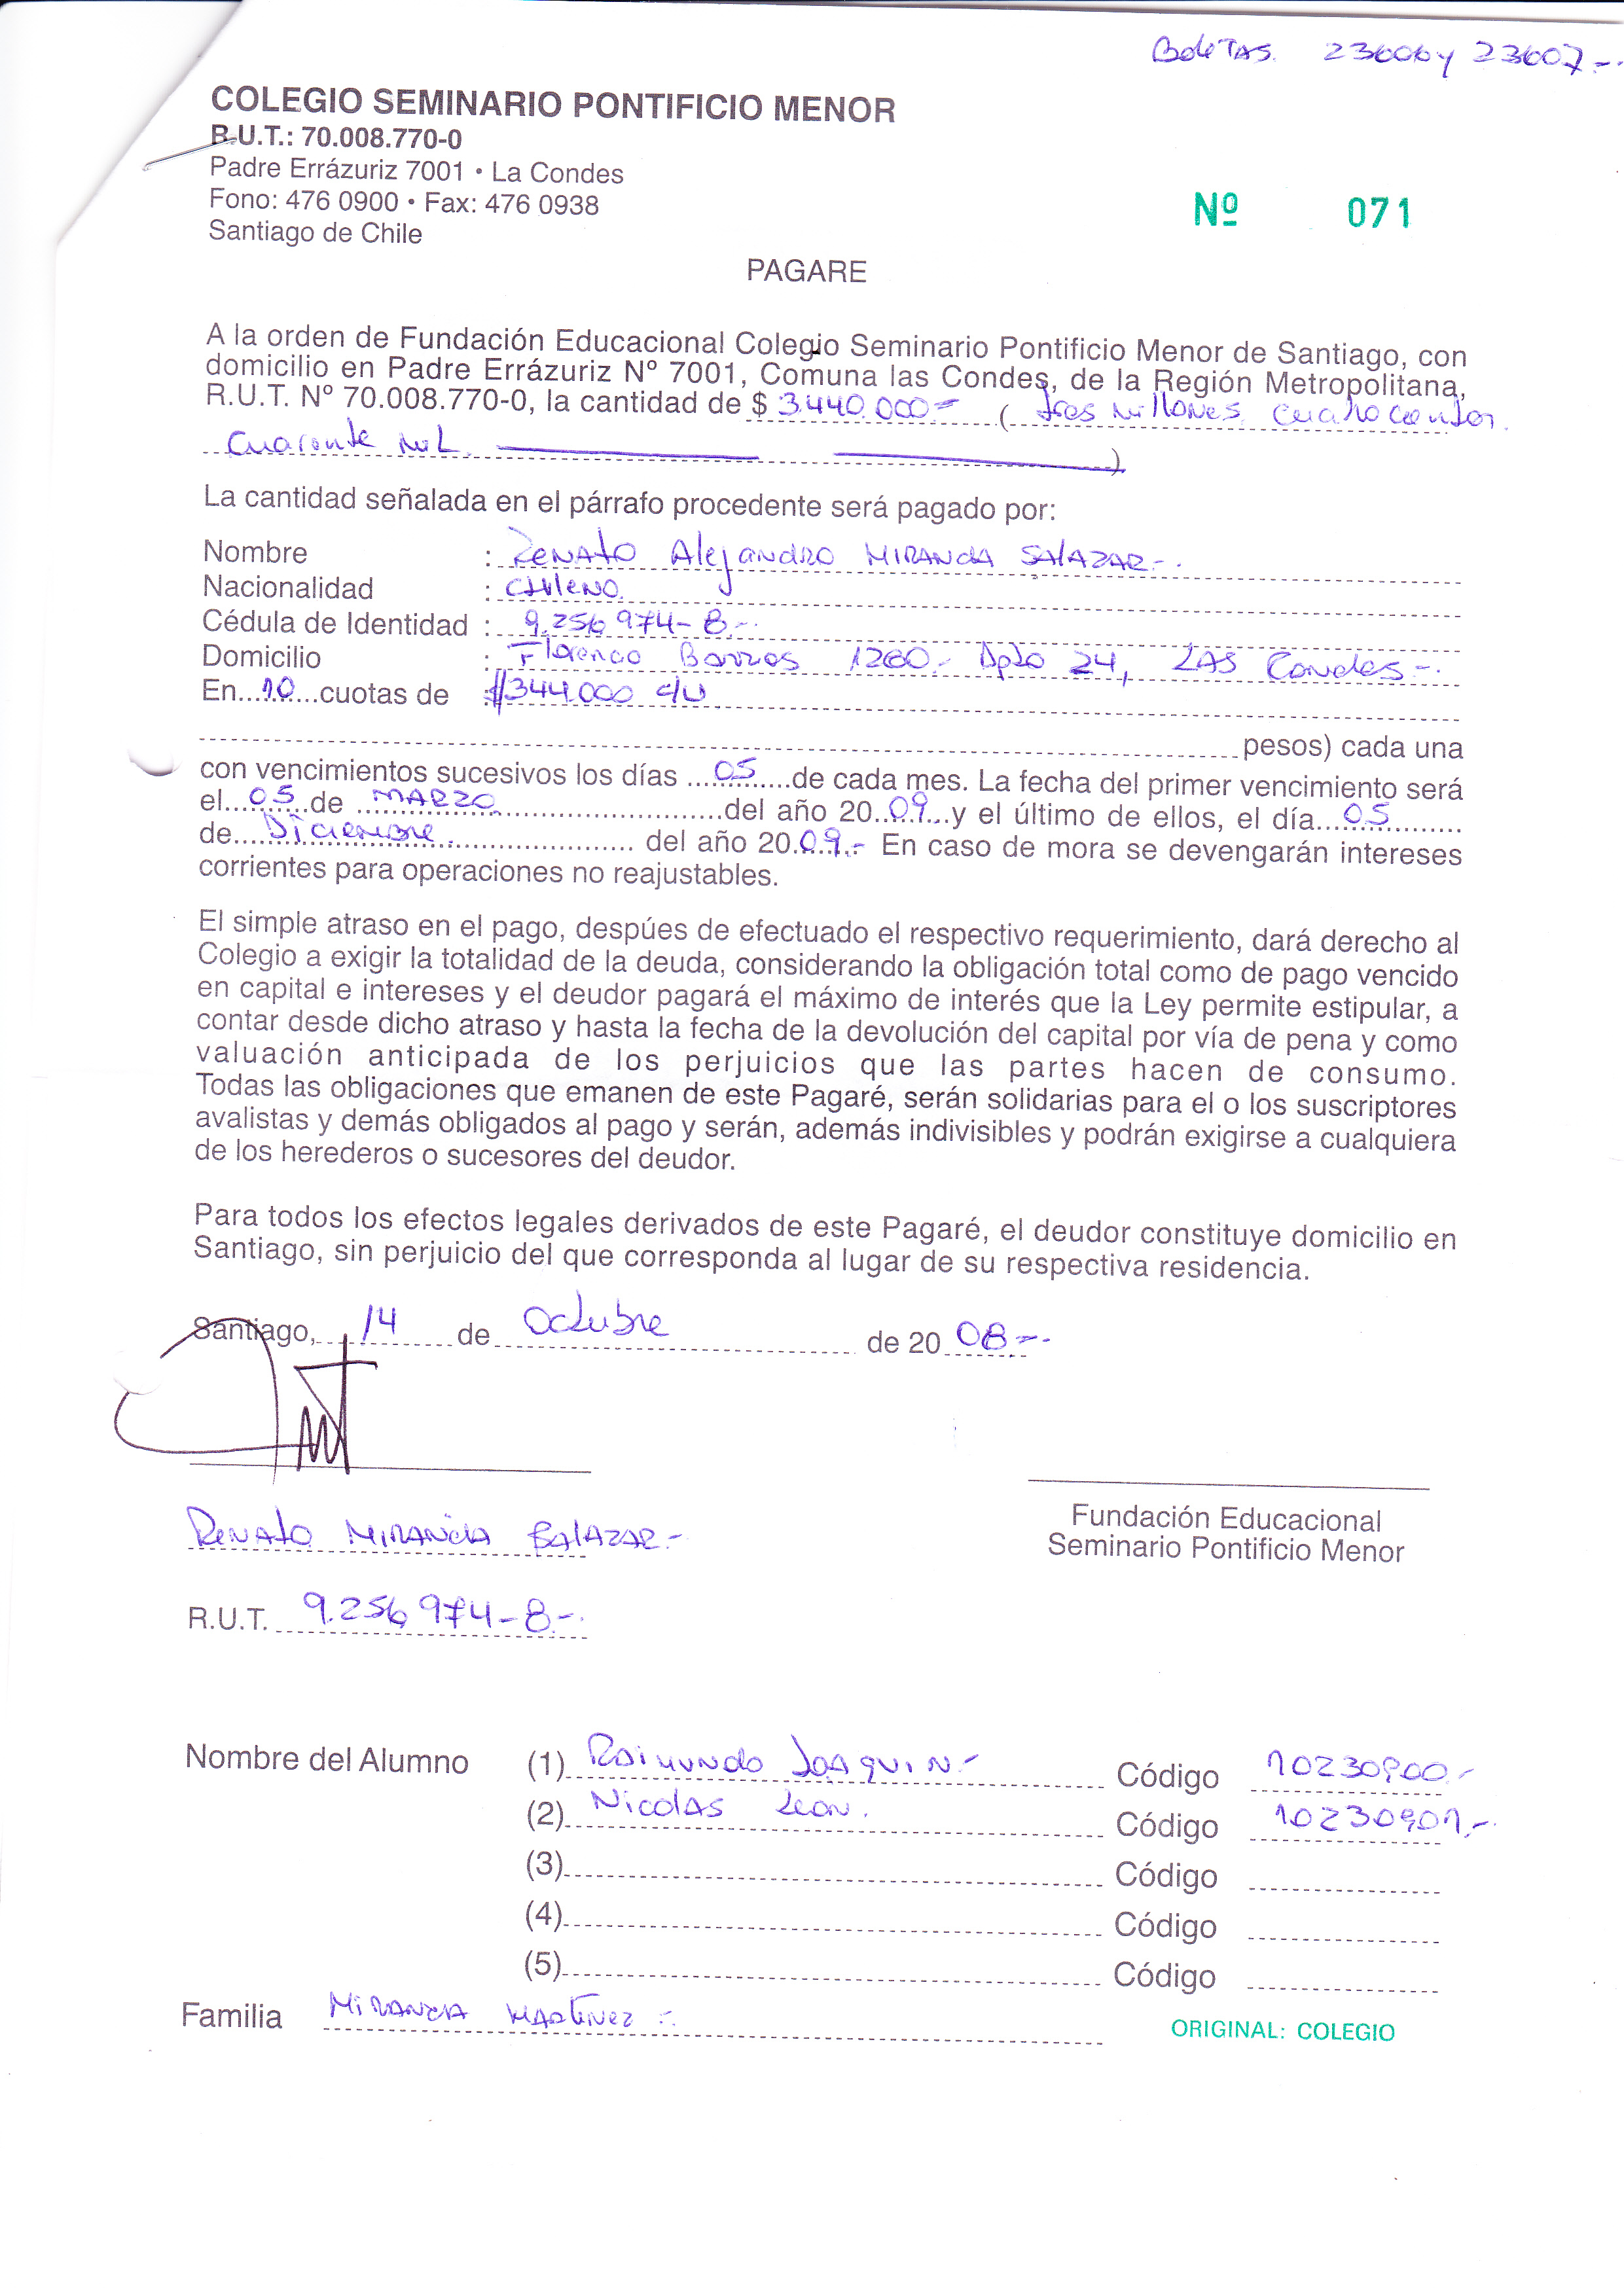 Boletas. 23606 y 23607.-
COLEGIO SEMINARIO PONTIFICIO MENOR
R.U.T.: 70.008.770-0
Padre Errázuriz 7001 • La Condes
Fono: 476 0900 • Fax: 476 0938
Santiago de Chile
Nº 071
PAGARE
A la orden de Fundación Educacional Colegio Seminario Pontificio Menor de Santiago, con
domicilio en Padre Errázuriz Nº 7001, Comuna las Condes, de la Región Metropolitana,
R.U.T. Nº 70.008.770-0, la cantidad de $ 3.440.000= (tres millones cuatrocientos
cuarenta mil )
La cantidad señalada en el párrafo procedente será pagado por:
Nombre : Renato Alejandro Miranda Salazar.-
Nacionalidad : Chileno.
Cédula de Identidad : 9.256.974-8.-
Domicilio : Florencio Barrios 1260.- Dpto 24, Las Condes.-
En 10 cuotas de : $344.000 c/u
pesos) cada una
con vencimientos sucesivos los días 05 de cada mes. La fecha del primer vencimiento será
el 05 de Marzo del año 2009 y el último de ellos, el día 05
de Diciembre. del año 2009.- En caso de mora se devengarán intereses
corrientes para operaciones no reajustables.
El simple atraso en el pago, despúes de efectuado el respectivo requerimiento, dará derecho al
Colegio a exigir la totalidad de la deuda, considerando la obligación total como de pago vencido
en capital e intereses y el deudor pagará el máximo de interés que la Ley permite estipular, a
contar desde dicho atraso y hasta la fecha de la devolución del capital por vía de pena y como
valuación anticipada de los perjuicios que las partes hacen de consumo.
Todas las obligaciones que emanen de este Pagaré, serán solidarias para el o los suscriptores
avalistas y demás obligados al pago y serán, además indivisibles y podrán exigirse a cualquiera
de los herederos o sucesores del deudor.
Para todos los efectos legales derivados de este Pagaré, el deudor constituye domicilio en
Santiago, sin perjuicio del que corresponda al lugar de su respectiva residencia.
Santiago, 14 de Octubre de 2008.-
Renato Miranda Salazar.-
Fundación Educacional
Seminario Pontificio Menor
R.U.T. 9.256.974-8.-
Nombre del Alumno (1) Raimundo Joaquin.- Código 10230900.-
(2) Nicolas Leon. Código 10230901.-
(3) Código
(4) Código
(5) Código
Familia Miranda Martinez.-
ORIGINAL: COLEGIO